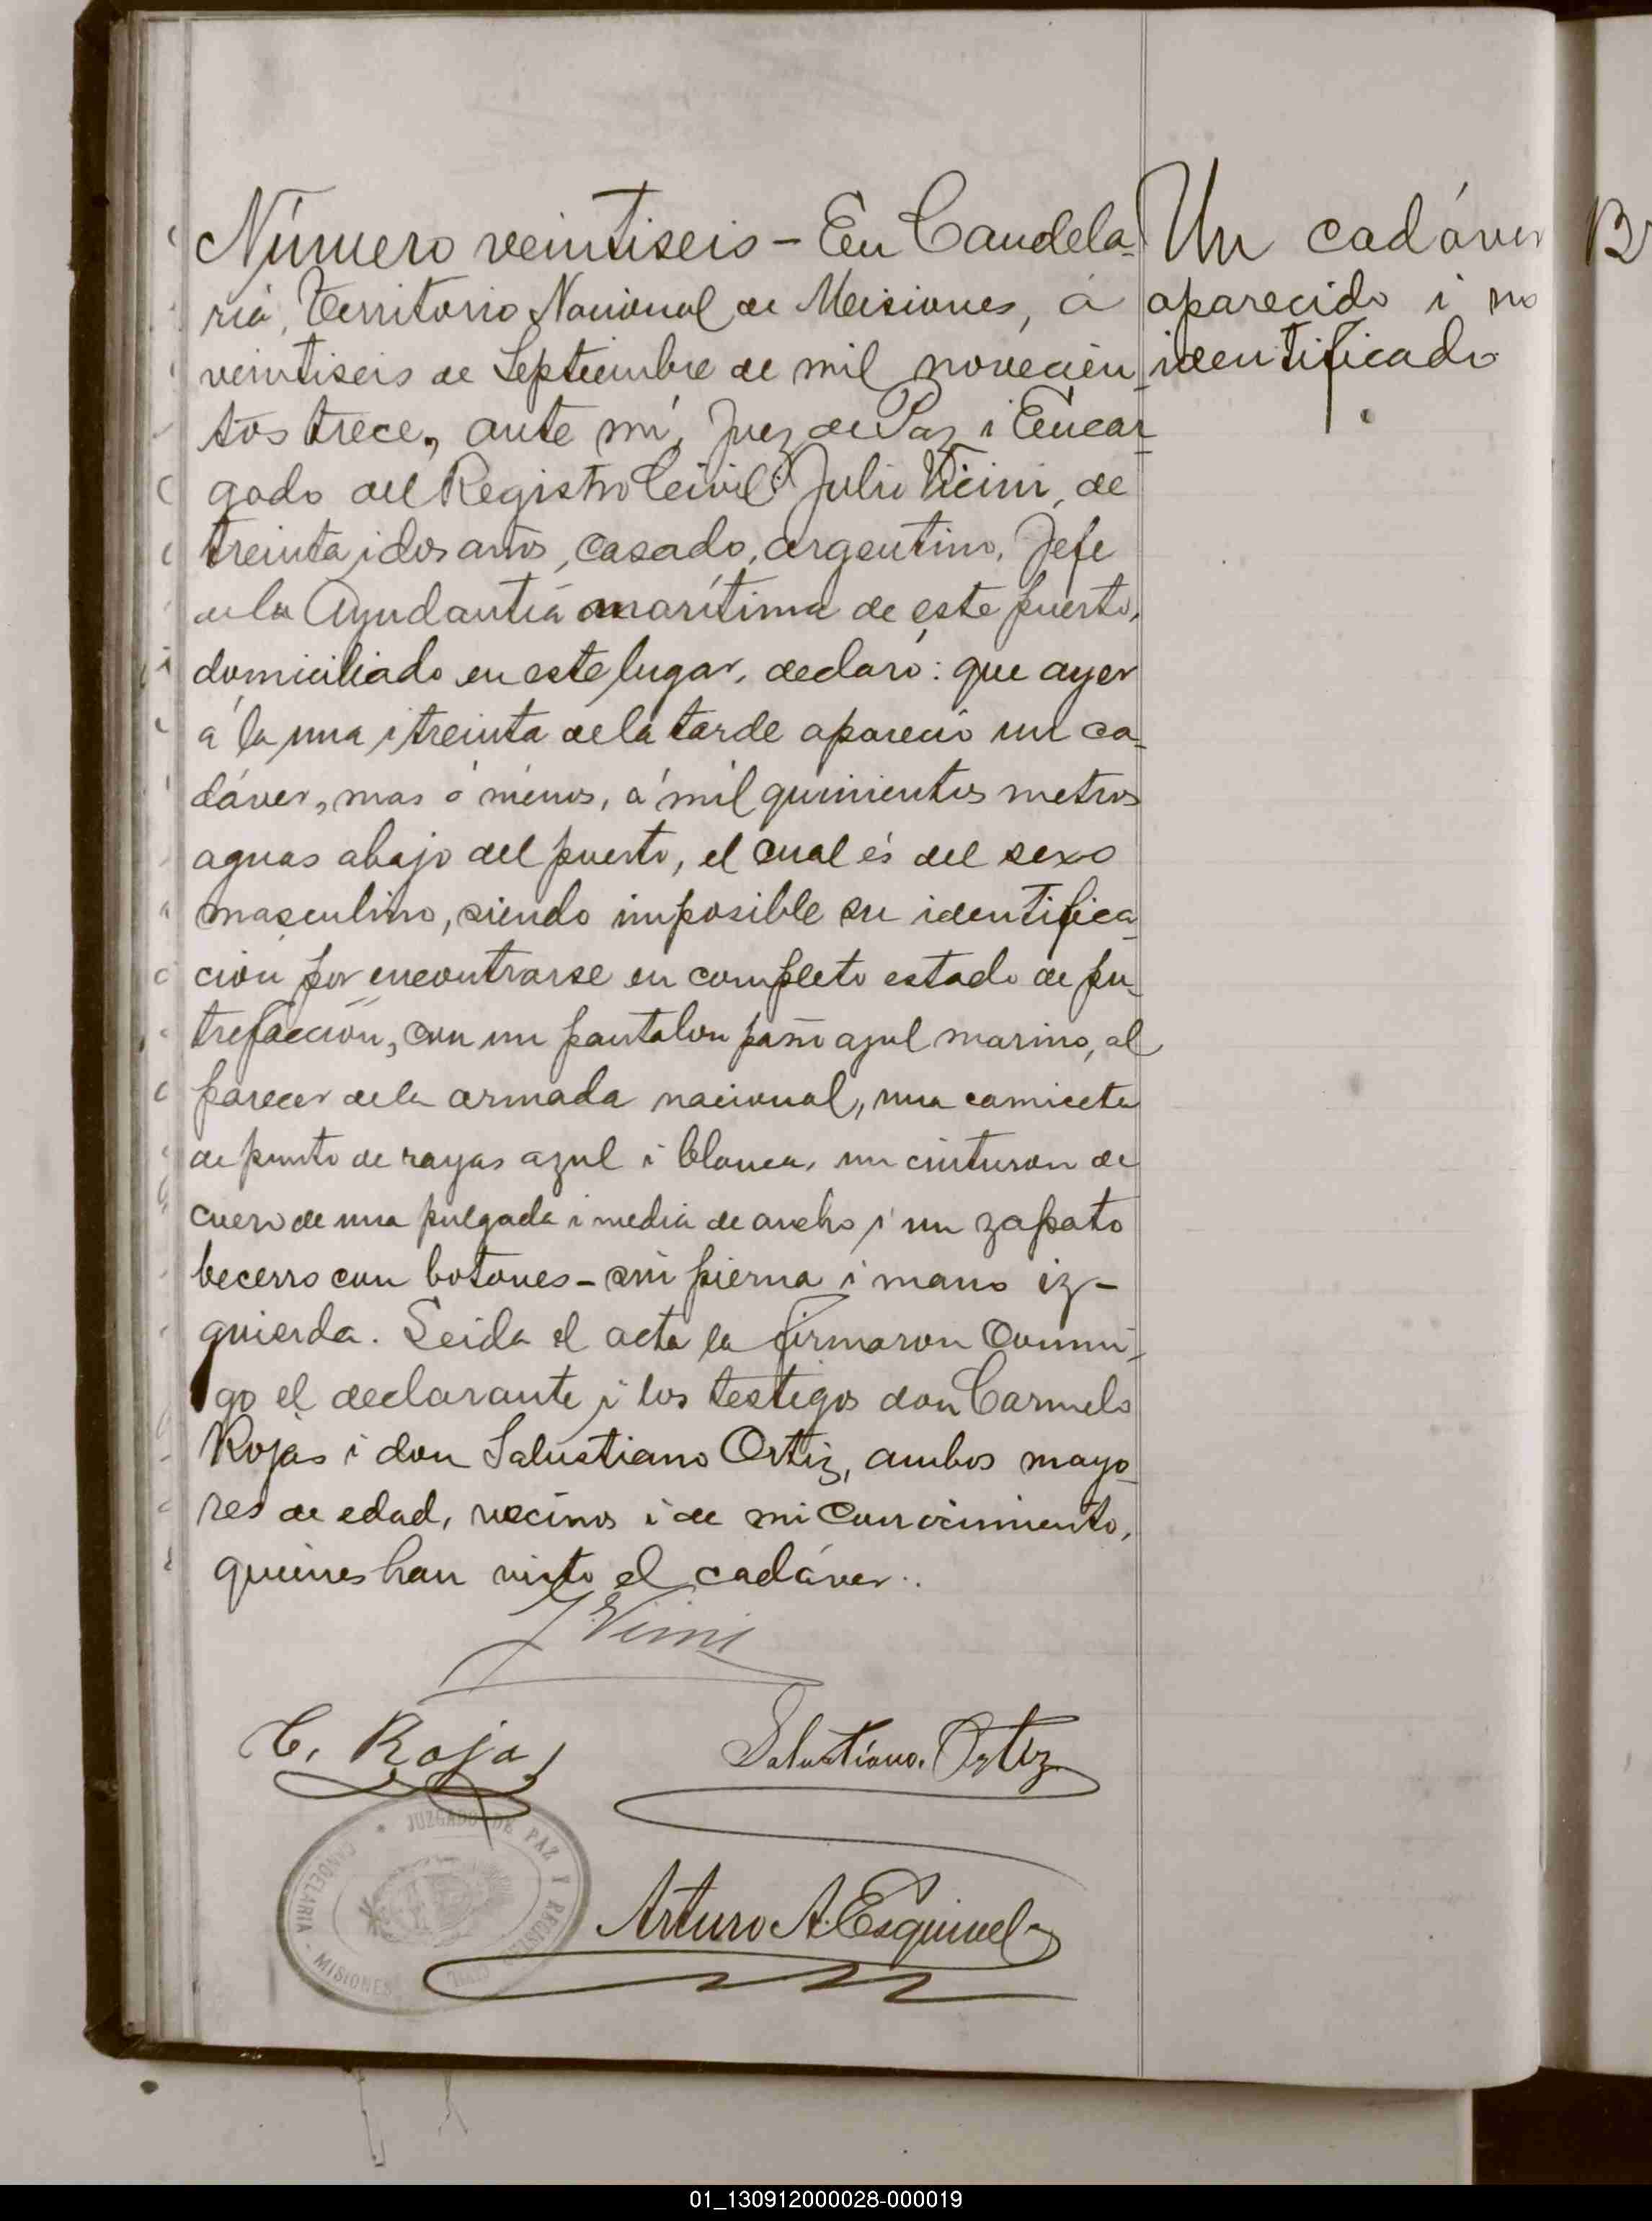 Número veintiseis - En Candela-
ria, Territorio Nacional de Misiones, á
veintiseis de Septiembre de mil novecien-
tos trece, ante mí, Juez de Paz i Encar-
gado del Registro Civil: Julio Vicini, de
treinta i dos años, casado, argentino, Jefe
de la Ayudantía marítima de este puerto,
domiciliado en este lugar, declaró: que ayer
á la una i treinta de la tarde apareció un ca-
dáver, mas ó ménos, á mil quinientos metros
aguas abajo del puerto, el cual és del sexo
masculino, siendo imposible su identifica-
ción por encontrarse en completo estado de pu-
trefacción, con un pantalon paño azul marino, al
parecer de la armada nacional, una camiseta
de punto de rayas azul i blanca, un cinturon de
cuero de una pulgada i media de ancho i un zapato
becerro con botones - sin pierna i mano iz-
quierda. Leida el acta la firmaron conmi-
go el declarante i los testigos don Carmelo
Rojas i don Salustiano Ortiz, ambos mayo-
res de edad, vecinos i de mi conocimiento,
quienes han visto el cadáver.
Un cadáver
aparecido i no
identificado
J. Vicini
C. Rojas
Salustiano Ortiz
JUZGADO DE PAZ Y REGISTRO CIVIL
CANDELARIA - MISIONES
Arturo A. Esquivel
01_130912000028-000019